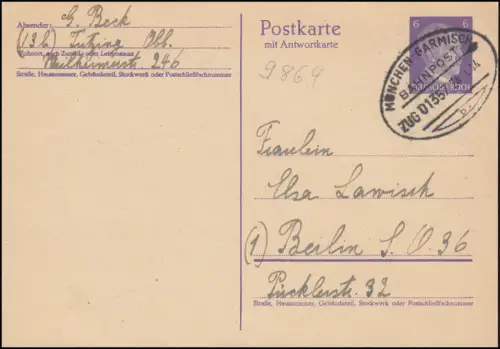 Absender: G. Beck
(13b) Tutzing Obb.
Wohnort, auch Zustell- oder Leitpostamt
246
Straße, Hausnummer, Gebäudeteil, Stockwerk oder Postschließfachnummer
Postkarte
mit Antwortkarte
9864
6 6
DEUTSCHES REICH
MÜNCHEN-GARMISCH
BAHNPOST
ZUG
Fräulein
Elsa Lawisch
(1) Berlin S.O. 36
Pücklerstr. 32
Straße, Hausnummer, Gebäudeteil, Stockwerk oder Postschließfachnummer